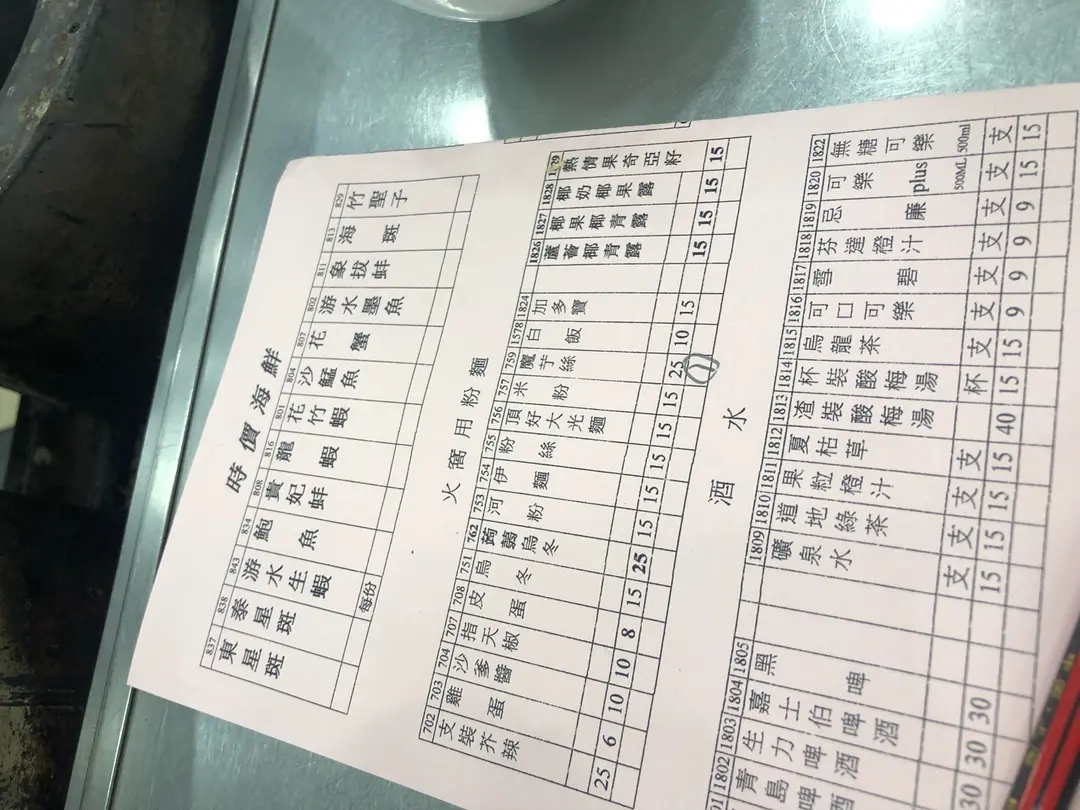 時價海鮮
837 東星斑
838 泰星斑
843 游水生蝦 每份
834 鮑魚
808 貴妃蚌
816 龍蝦
801 花竹蝦
804 沙鯭魚
807 花蟹
802 游水墨魚
811 象拔蚌
813 海斑
829 竹聖子
火窩用粉麵
702 支裝芥辣 25
703 雞蛋 6
704 沙爹醬 10
707 指天椒 10
708 皮蛋 8
751 烏冬 15
762 蒟蒻烏冬 25
753 河粉 15
754 伊麵 15
755 粉絲 15
756 頂好大光麵 15
757 米粉 15
759 魔芋絲 25 1
1578 白飯 10
1824 加多寶 15
1826 蘆薈椰青露 15
1827 椰果椰青露 15
1828 椰奶椰果露 15
熱情果奇亞籽 15
酒水
1802 青島啤酒
1803 生力啤酒 30
1804 嘉士伯啤酒 30
1805 黑啤 30
1809 礦泉水 支 15
1810 道地綠茶 支 15
1811 果粒橙汁 支 15
1812 夏枯草 支 15
1813 渣裝酸梅湯 40
1814 杯裝酸梅湯 杯 15
1815 烏龍茶 支 15
1816 可口可樂 支 9
1817 雪碧 支 9
1818 芬達橙汁 支 9
1819 忌廉 支 9
1820 可樂 plus 500ML 支 15
1822 無糖可樂 500ml 支 15